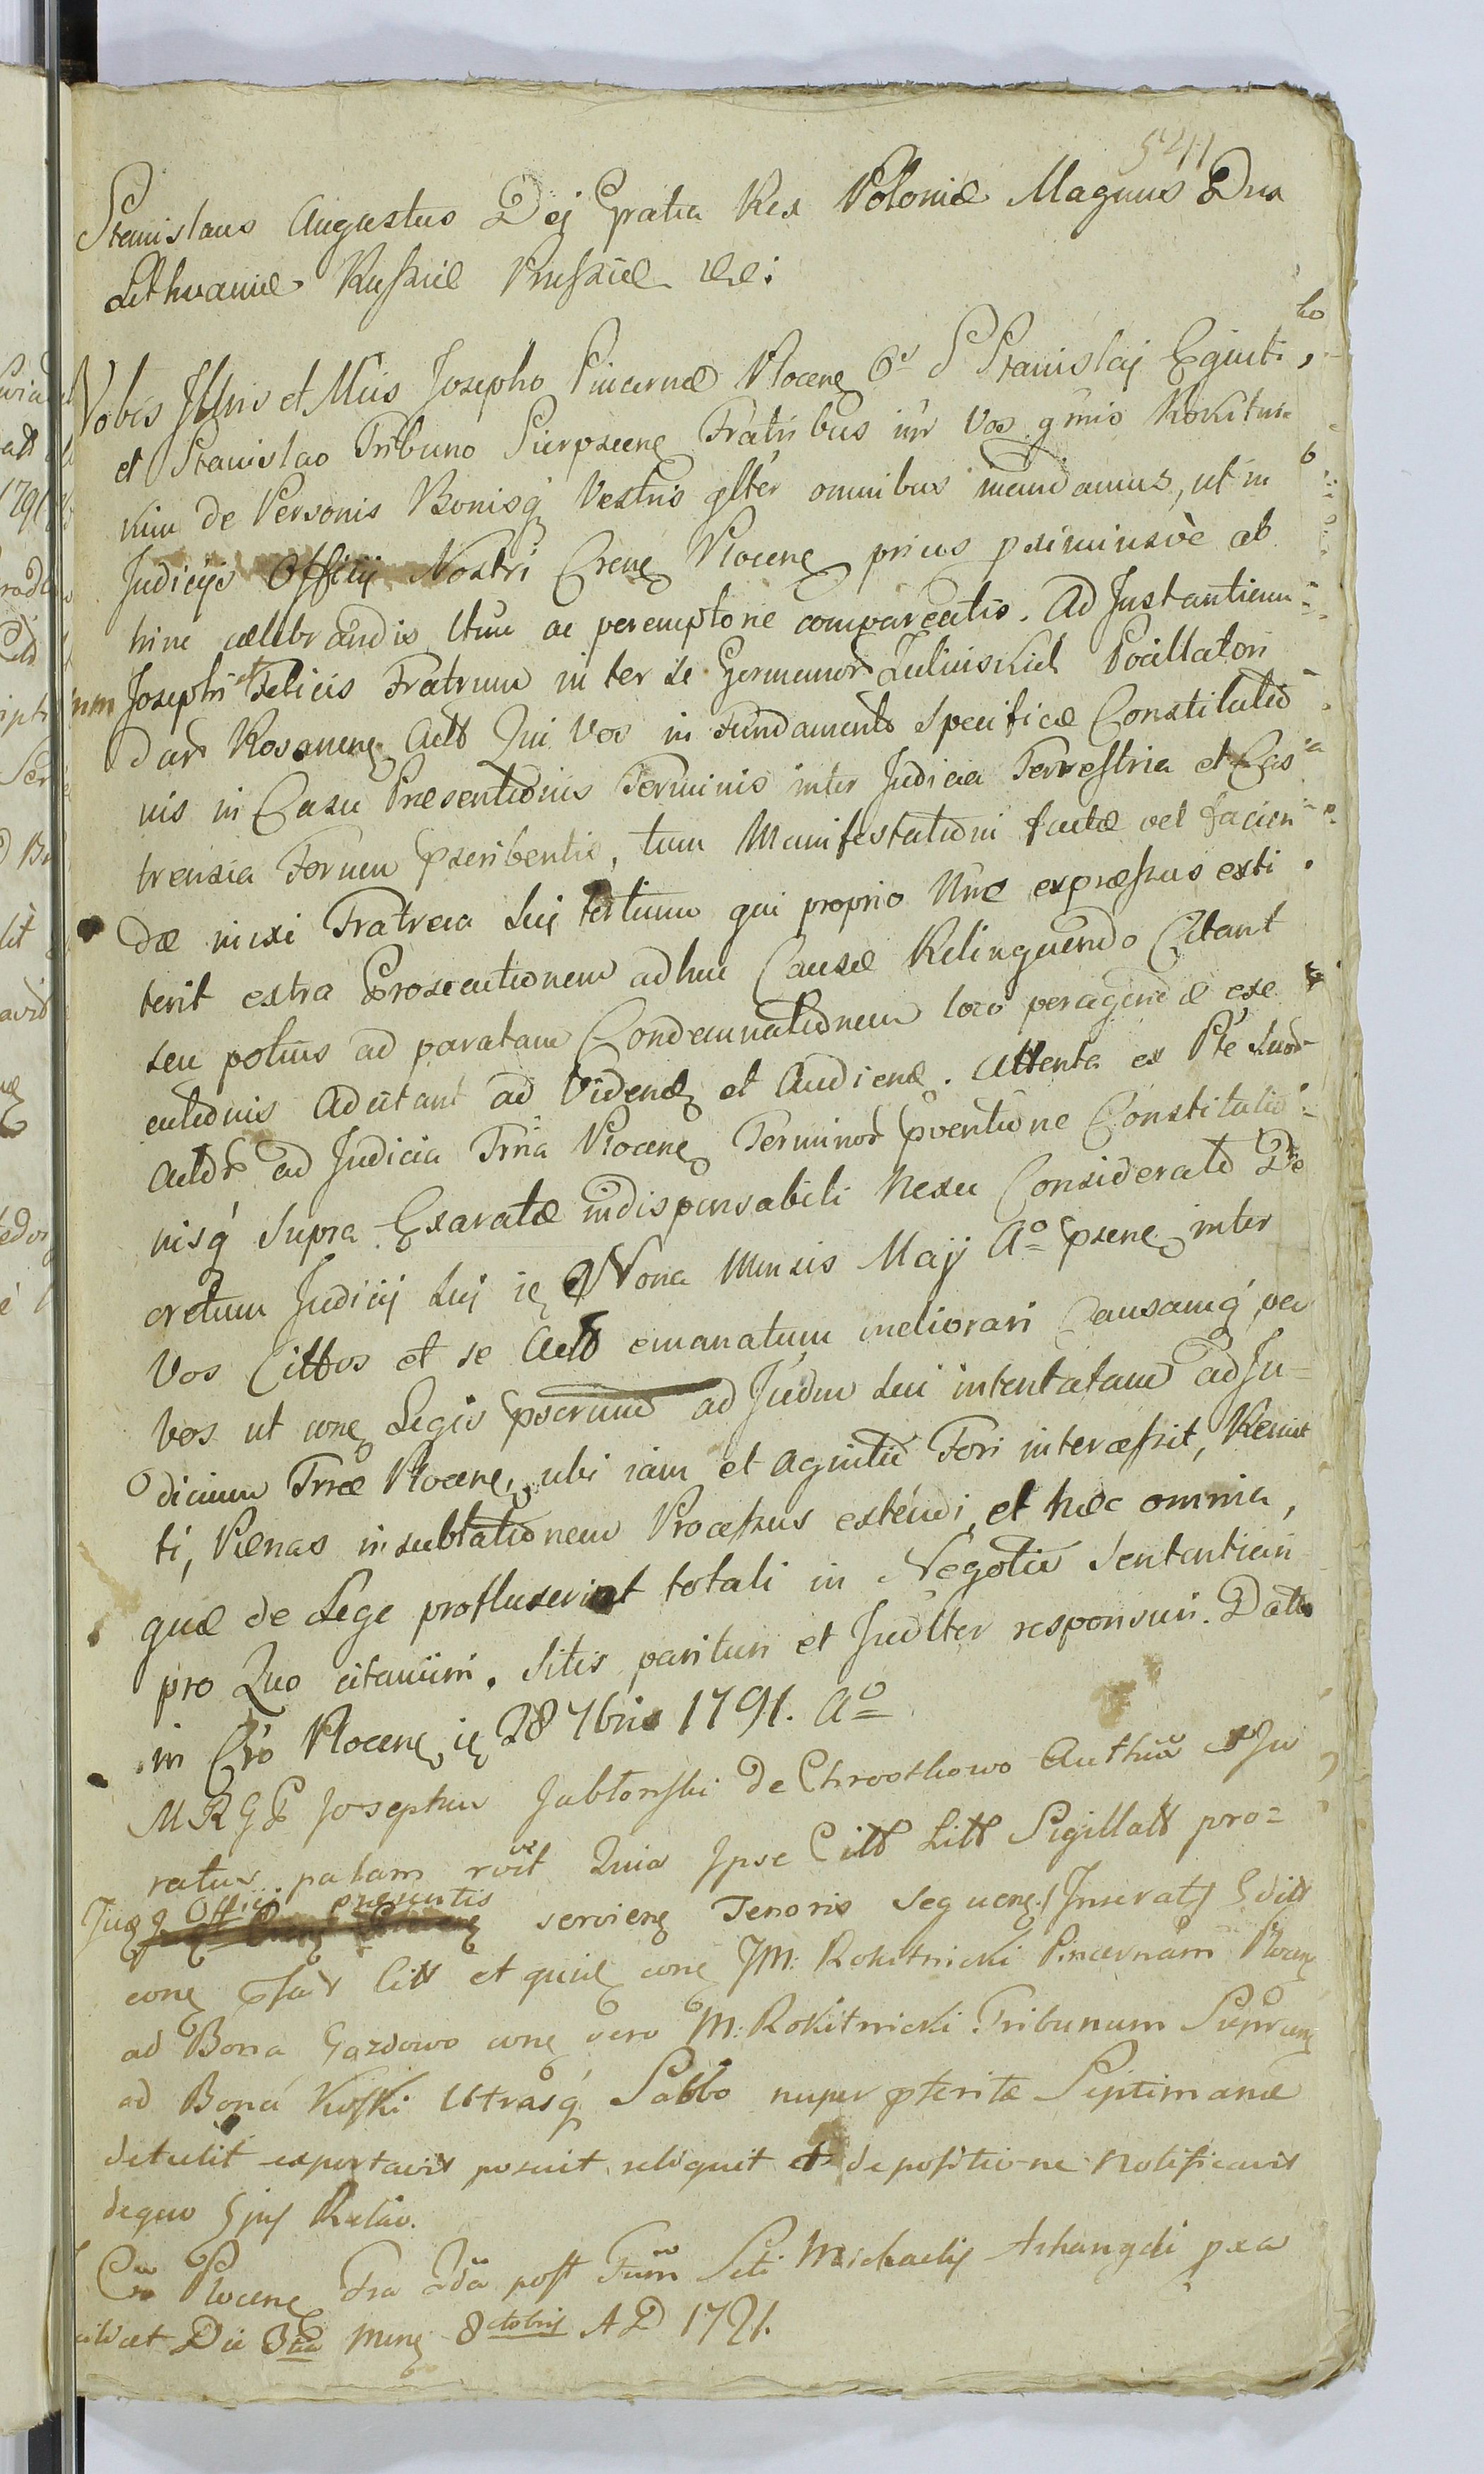 541
Stanislaus Augustus Dej Gratia Rex Poloniæ Magnus Dux
Lithvaniæ Russiæ Prussiæ &c:
Vobis Illris et Mcis Josepho Pincernæ Plocen Or S Stanislaj Equiti,
et Stanislao Tribuno Sierpscen Fratribus inr Vos gmis Rokitnic
kim de Personis Bonisq Vestris glter omnibus mandamus, ut in
Judicijs Officij Nostri Cren Plocen prius pximiusvè ab
hinc celebrandis Ltme ac peremptorie compareatis. Ad Instantiam
Josephi et Felicis Fratrum inter se Germanor Zulinskich Pocillatori
dar Rosanen Actt Qui Vos in Fundamento Specificæ Constitutio
nis in Casu Præsentionis Terminis inter Judicia Terrestria et Cas
trensia Forum pscribentis, tum Manifestationi factæ vel facien
dæ nixi Fratrem Suj tertium qui proprio Nne expressus exti
terit extra Prosecutionem adhuc Causæ Relinquendo Citant
seu potius ad paratam Condemnationem loco peragendæ exe
cutionis Adcitant ad Vidend et Audiend. Attenta ex Pte Suor
Actor ad Judicia Trria Plocen Terminor pventione Constitutio
nisq Supra Exaratæ indispensabili Nexu Considerato De
cretum Judicij Suj ie Nona Mensis Maji Ao psen inter
Vos Cittos et se Actt emanatum meliorari Causamq per
Vos ut con Legis pscriptum ad Judm Sui intentatam ad Ju=
dicium Trræ Plocen, ubi iam et agnitio Fori intercessit, Remit
ti, Pœnas in sublationem Processus extendi, et hæc omnia,
quæ de Lege profluxerint totali in Negotio Sententiari
pro Quo citamini. Sitis parituri et Judlter responsuri. Datt
in Cro Plocen ie 28 7bris 1791. Ao
M R G P Josephus Jabłonski De Chrostkowo Authen et Ju
ratus palam rvit Quia Ipse Citt Litt Sigillatt pro=
Jusq Officij præsentis servien Tenoris sequen (Inserat) Edit
con Citt et quid con JM: Rokitnicki Pincernam Plocen
ad Bona Gozdowo con vero M: Rokitnicki Tribunum Sierpcen
ad Bona Kuski Utrasq Sabbo nuper pterite Septimanæ
detulit exportavit posuit reliquit et depositione notificavit
dequo Ejus Relao.
Cro Plocen Fra 2da post Fum Scti Michaelis Arhangeli pxa
scilicet Die 3tia Mens 8ctobris A D 1791.